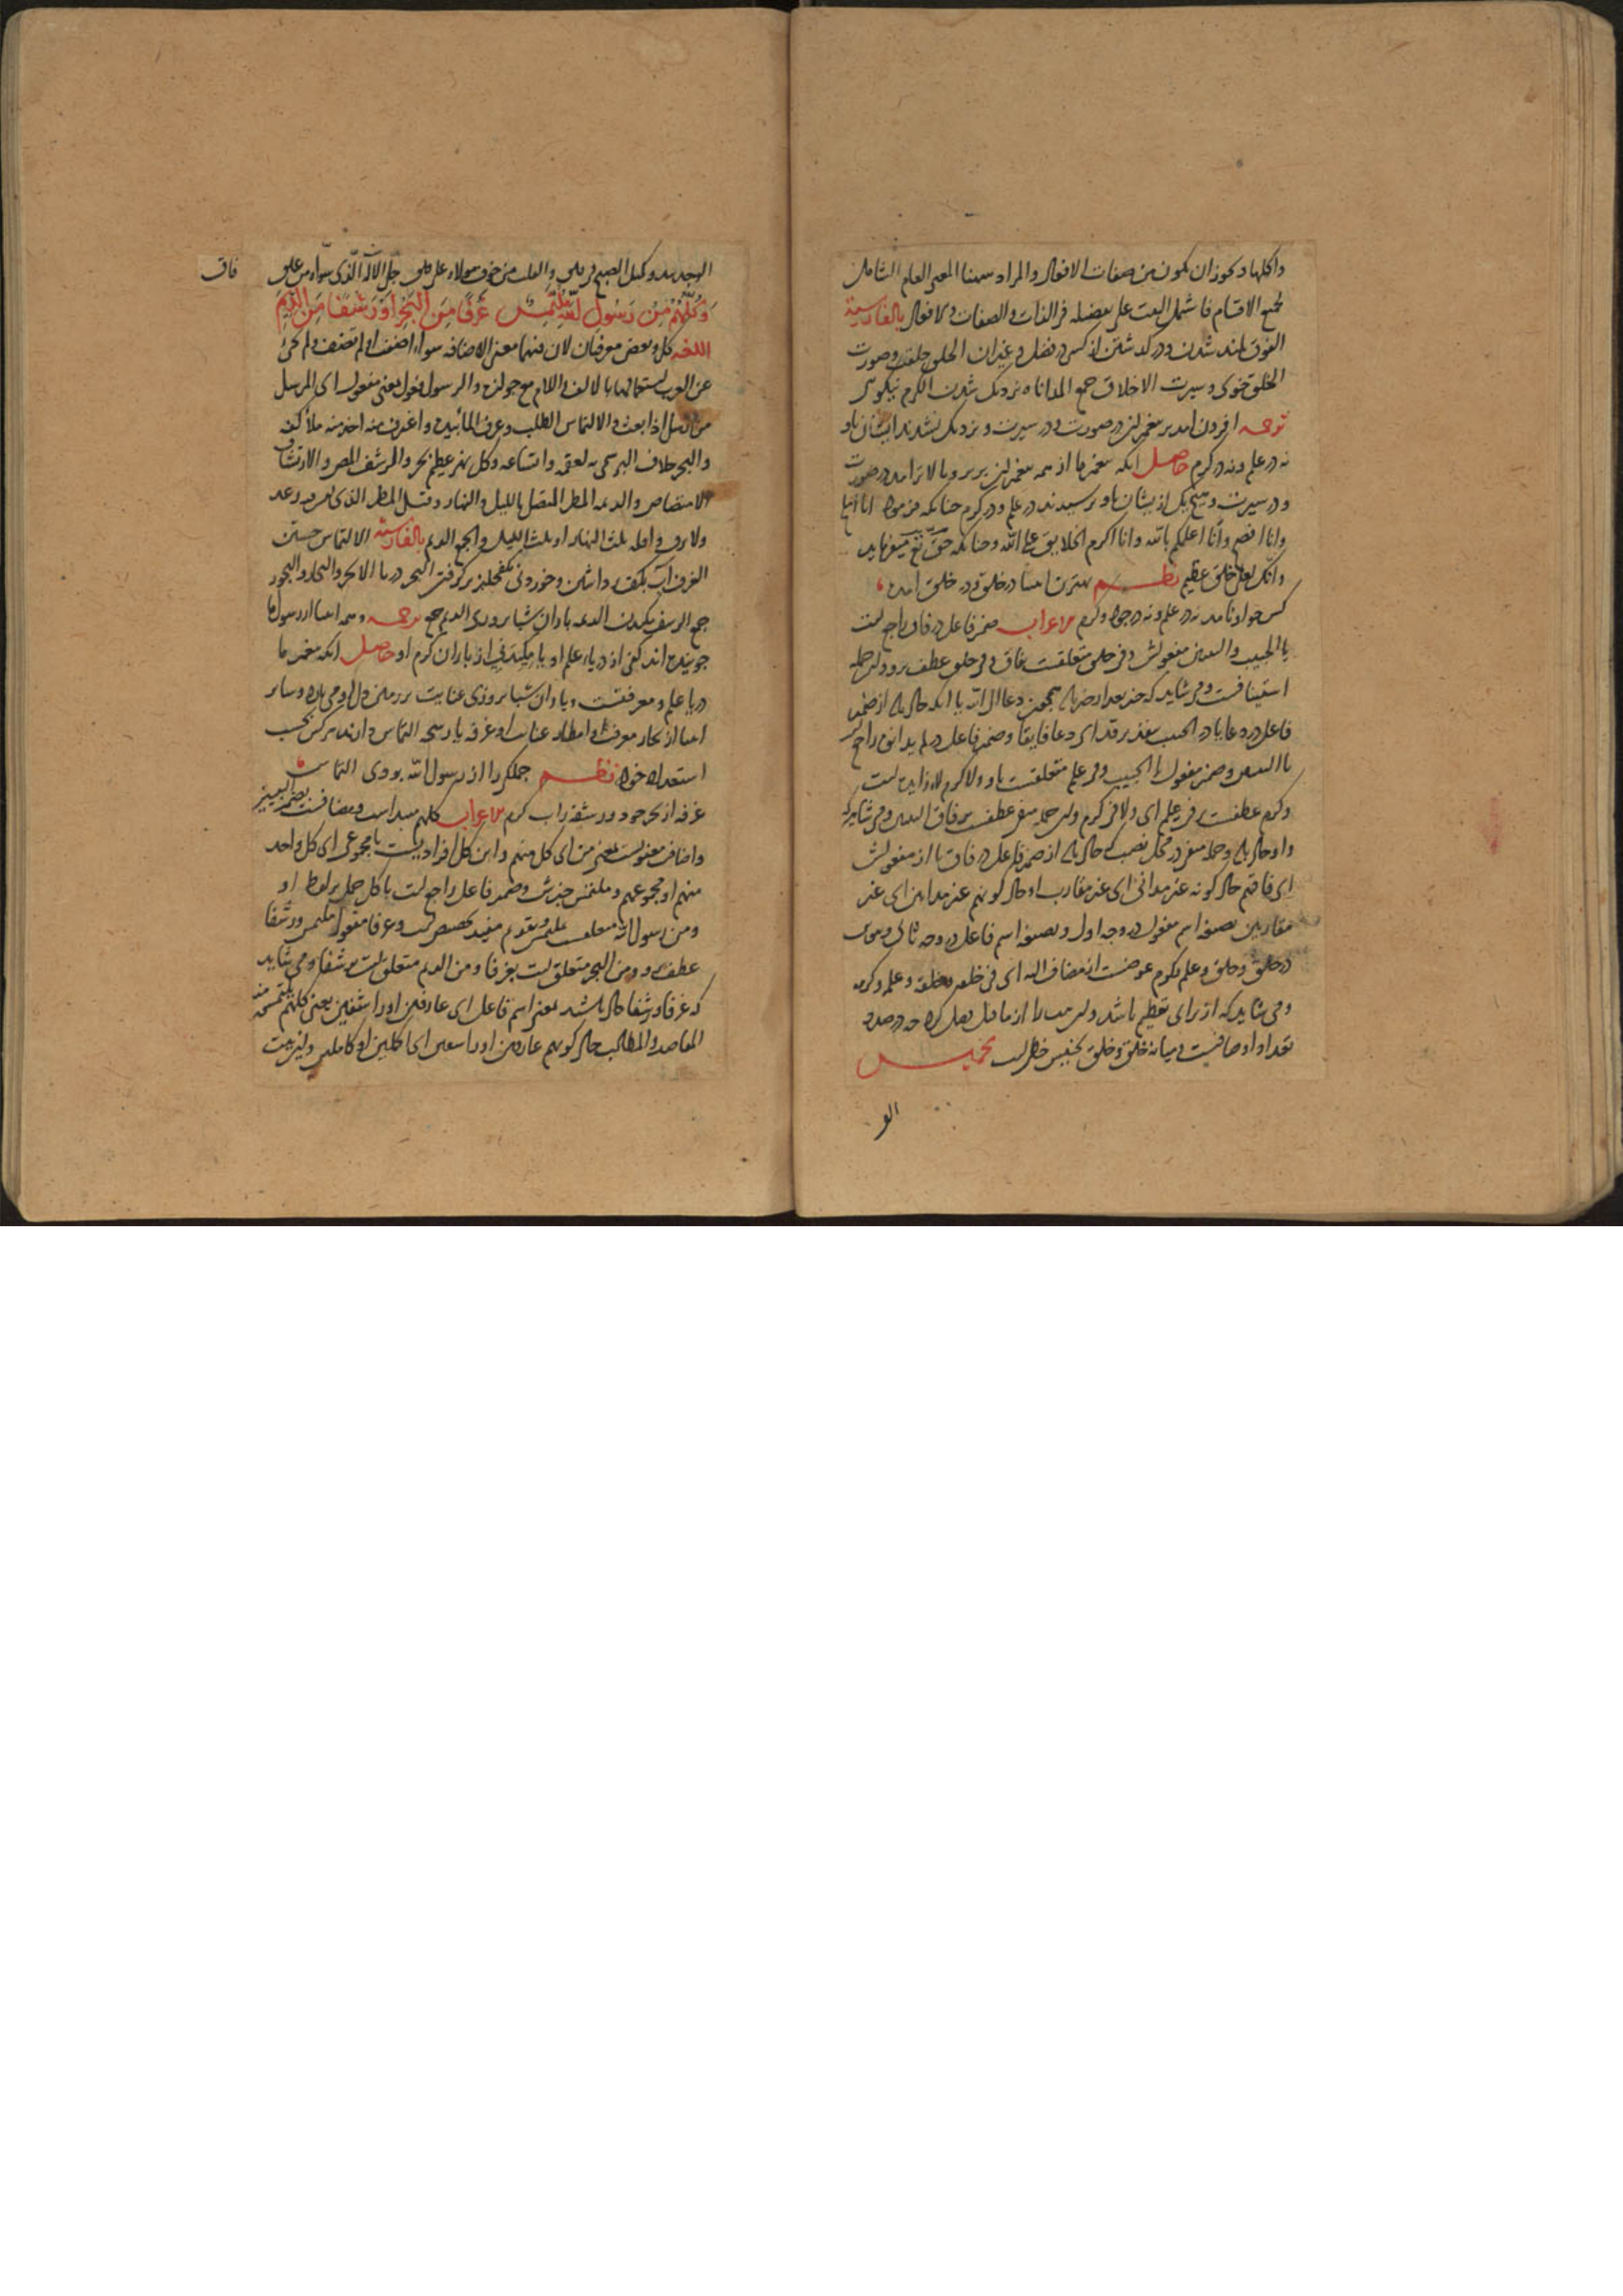 واكملها ويجوز ان يكون من صفات الافعال والمراد ههنا المعنى العام الشامل
لجميع الاقسام فاشتمل البيت على تفضيله فى الذات والصفات والافعال بالفارسية
الفوق بلند شدن و در گذشتن از كسى در فضل و غيران الخلق خلقت و صورت
الخلق خوى و سيرت الاخلاق جمع المداناه نزديك شدن الكرم نيكويى
ترجمه افزون آمد بر پيغمبران در صورت و در سيرت و نزديك نشدند ايشان باو
نه در علم و نه در كرم حاصل آنكه پيغمبر ما از همه پيغمبران برتر و بالاتر آمد در صورت
و در سيرت و هيچ يك از ايشان باو نرسيدند در علم و در كرم چنانكه فرمود انا
وانا افصح وانا اعلمكم بالله وانا اكرم الخلايق على الله و چنانكه حق تع ميفرمايد
وانك لعلى خلق عظيم نظم بهترين انبيا در خلق و در خلق آمده
كس چو او نامد نه در علم و نه در جود و كرم اعراب ضمير فاعل در فاق راجع است
با الحبيب والنبيين مفعولش و فى خلق متعلقست بفاق و فى خلق عطف برو و اين جمله
استينافست و مى شايد كه خبر بعد از خبر باشد همچون دعا الى الله يا آنكه حال باشد از ضمير
فاعل در دعا يا در الحبيب بتقدير قد اى دعا فايقا و ضمير فاعل در لم يدانوه راجع
با النبيين و ضمير مفعول با الحبيب و فى علم متعلقست باو و لا كرم لا زايده است
و كرم عطفست بر فى علم اى و لا فى كرم و اين جمله منفى عطفست بر فاق النبيين و مى شايد كه
واو حال باشد و جمله منفى در محل نصب كه حال باشد از ضمير فاعل در فاق يا از مفعولش
اى فاقهم حال كونه غير مدانى اى غير مقارب او حال كونهم غير مدانين اى غير
مقاربين بصيغه اسم مفعول در وجه اول و بصيغه اسم فاعل در وجه ثانى و تنوين
در خلق و خلق و علم و كرم عوضست از مضاف اليه اى فى خلقه و خلقه و علمه و كرمه
و مى شايد كه از براى تعظيم باشد و اين بيت را از ما قبل فصل كرد چه در صدد
تعداد اوصافست و ميانه خلق و خلق تجنيس خطى است تخميس
الو
فاق
جل الاله الذى سواه من علق
وكلهم من رسول الله ملتمس غرفا من البحر او رشفا من الديم
اللغه كل و بعض معرفتان لان فيهما معنى الاضافه سواء اضفت او لم تضف و لم يجئ
عن العرب استعمالهما بالالف واللام مع جوازه والرسول فعول بمعنى مفعول اى المرسل
من ارسل اذا بعث والالتماس الطلب و غرف الماء بيده واغترف منه اخذ منه ملأ كفه
والبحر خلاف البر سمى به لعمقه واتساعه وكل نهر عظيم بحر والرشف المص والارتشاف
الامتصاص والديمه المطر المتصل بالليل والنهار وقيل المطر الذى ليس فيه رعد
ولا برق واقله ثلث النهار او ثلث الليل والجمع الديم بالفارسية الالتماس جستن
الغرف آب بكف برداشتن و خوردنى بكفچليز برگرفتن البحر دريا الابحر والبحار والبحور
جمع الرشف مكيدن الديمه باران شبانروزى الديم جمع ترجمه و همه انبيا از رسول ما
جوينده اند كفى از درياء علم او يا مكيدنى از باران كرم او حاصل آنكه پيغمبر ما
دريا علم و معرفتست و باران شبانروزى عنايت بر زمين دل او مى بارد و ساير
انبيا از بحار معرفت و امطار عنايت او غرفه يا رشحه التماس دارند هر كس بحسب
استعداد خود نظم جملگى را از رسول الله بودى التماس
غرفه از بحر جود و رشفه ز آب كرم اعراب كلهم مبتداست و مضافست بضمير النبيين
و اضافت معنويست بمعنى من اى كل منهم و اين كل افراديست يا مجموعى اى كل واحد
منهم او مجموعهم و ملتمس خبرش و ضمير فاعل راجع است با كل حمل بر لفظ او
و من رسول الله متعلقست بملتمس و تقديم مفيد تخصيص است و غرفا مفعول ملتمس و رشفا
عطف برو و من البحر متعلق است بغرفا و من الديم متعلق است برشفا و مى شايد
كه غرفا و رشفا حال باشند بمعنى اسم فاعل اى غارفين او راشفين يعنى كلهم ملتمس منه
المقاصد والمطالب حال كونهم غارفين او راشفين اى اكلين او كاملين و اين بيت